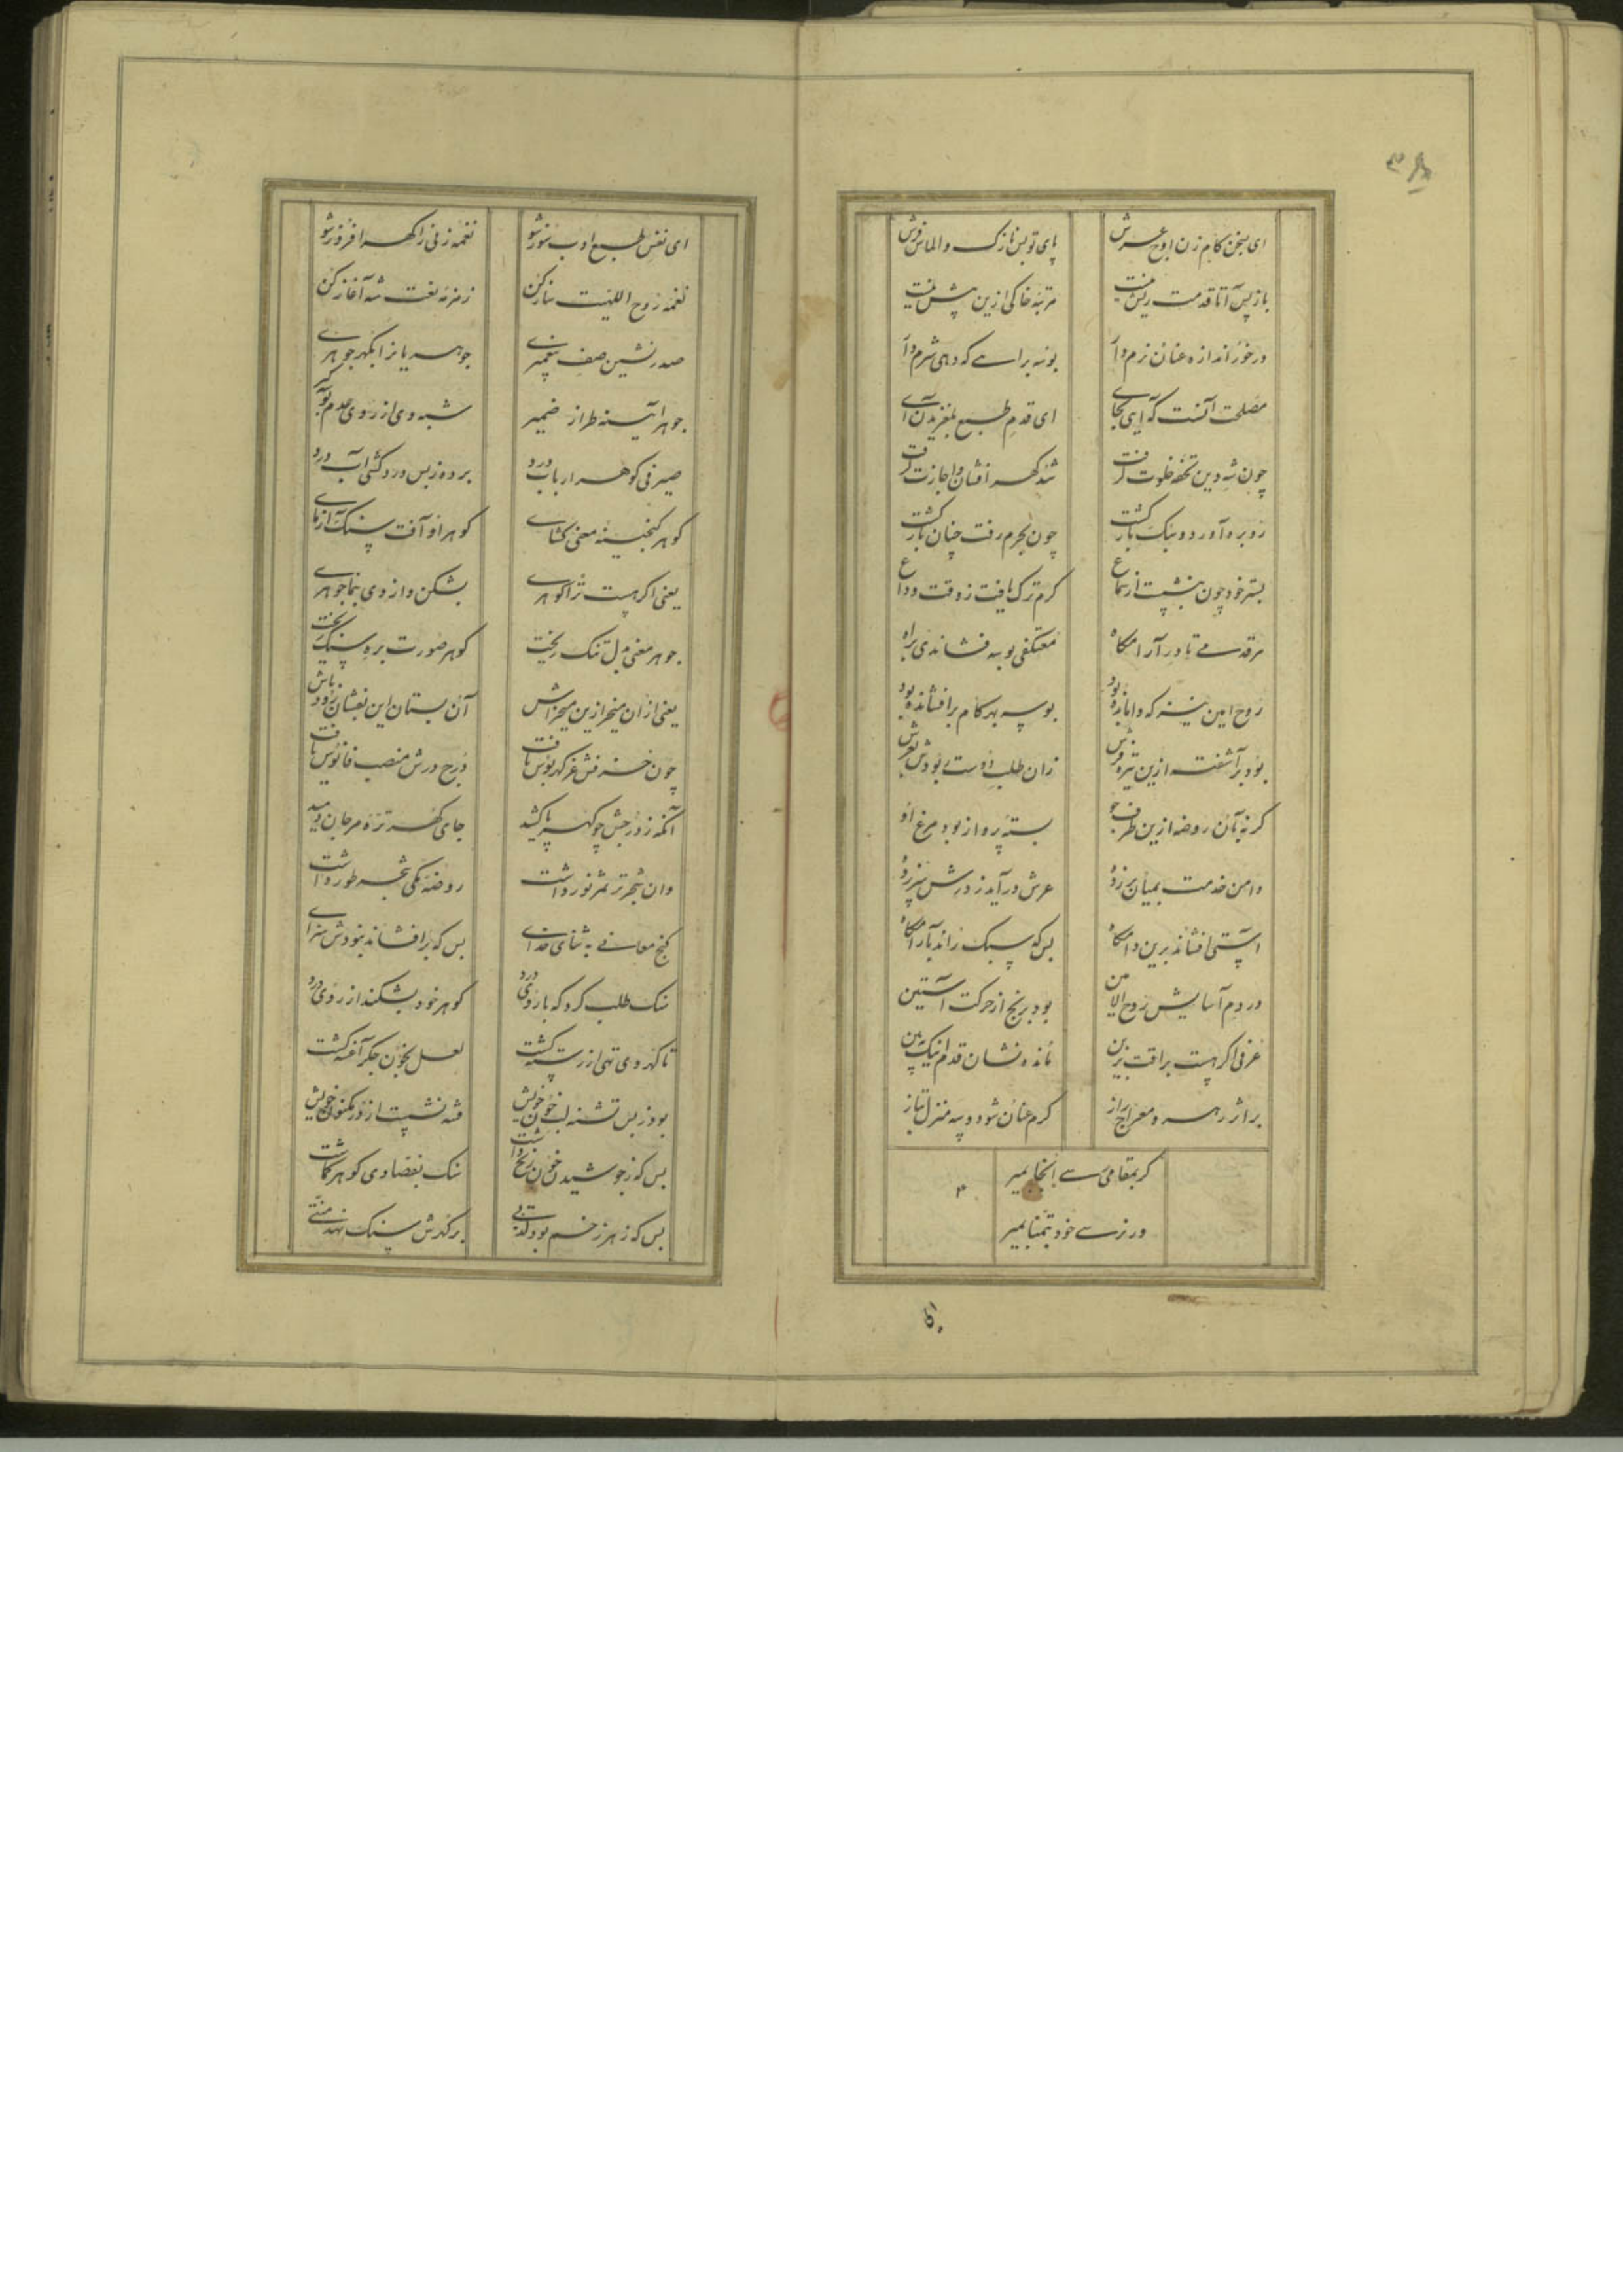 ای سخن کام زن اوج عرش
پای تو بس نازک و الماس فرش
باز پس آ تا قدمت ریش نیست
مرتبه خاکی ازین پیش نیست
در خور اندازه عنان نرم دار
بوسه براهی که دهی شرم دار
مصلحت آنست که آیی بجای
ای قدم طبع بلغزیدن آی
چون شه دین تحفه خلوت گرفت
شد گهر افشان و اجازت گرفت
زو بره آورد و سبک بازگشت
چون بحرم رفت چنان بازگشت
بستر خود چون بنشست از سماع
گرم ترک یافت ز وقت وداع
هر قدمی تا در آرامگاه
معتکفی بوسه فشاندی براه
روح امین نیز که وامانده بود
بوسه بهر گام برافشانده بود
بود برآشفته ازین تیره فرش
زان طلب دوست ربودش بعرش
گر نه بآن روضه ازین طرف جو
بسته پرواز بود مرغ او
دامن خدمت بمیان برزده
عرش درآمد ز درش سرزده
آستی افشاند برین دامگاه
بس که سبک راند بآرامگاه
در دم آسایش روح الامین
بود برنج از حرکت آستین
عرفی اگر هست براقت بزین
مانده نشان قدم اینک ببین
بر اثر رهرو معراج راز
گرم عنان شو دو سه منزل بتاز
گر بمقامی رسی آنجا بمیر
ور نرسی خود بتمنا بمیر
ای نفس طبع ادب سوز شو
نغمه زنی را گهر افروز شو
نغمه روح اللهیت ساز کن
زمزمه نعت شه آغاز کن
صدر نشین صف پیغمبری
جوهر یا نر ابگهر جوهری
جوهر آیینه طراز ضمیر
شبه وی از روی عدم توبه گیر
صیرفی گوهر ارباب درد
برده ز بس درد کشی آب درد
گوهر گنجینه معنی گشای
گوهر او آفت سنگ آزمای
یعنی اگر هست ترا گوهری
بشکن و از وی بنما جوهری
جوهر معنی بدل تنگ ریخت
گوهر صورت بره سنگ ریخت
یعنی ازان میخر ازین میخراش
آن بستان این بفشان زود باش
چون خسرفش غر گهر بوس یافت
درج درش منصب فانوس یافت
آنکه ز درجش چو گهر پا کشید
جای گهر تره مرجان دمید
وان شجر تر ثمر نور داشت
روضه مکی شجر طور داشت
گنج معانی به ثنای خدای
بس که برافشاند نبودش سزای
سنگ طلب کرد که با روی درد
گوهر خود بشکند از روی درد
تا گهر وی تهی از رسته گشت
لعل بخون جگر آغشته گشت
بود ز بس تشنه لب خون خویش
شد نشست از در مکنون خویش
بس که ز جوشیدن خون رنج داشت
سنگ بفصادی گوهر گماشت
بس که ز هر زخم بود لذتی
بر گهرش سنگ نهد منتی